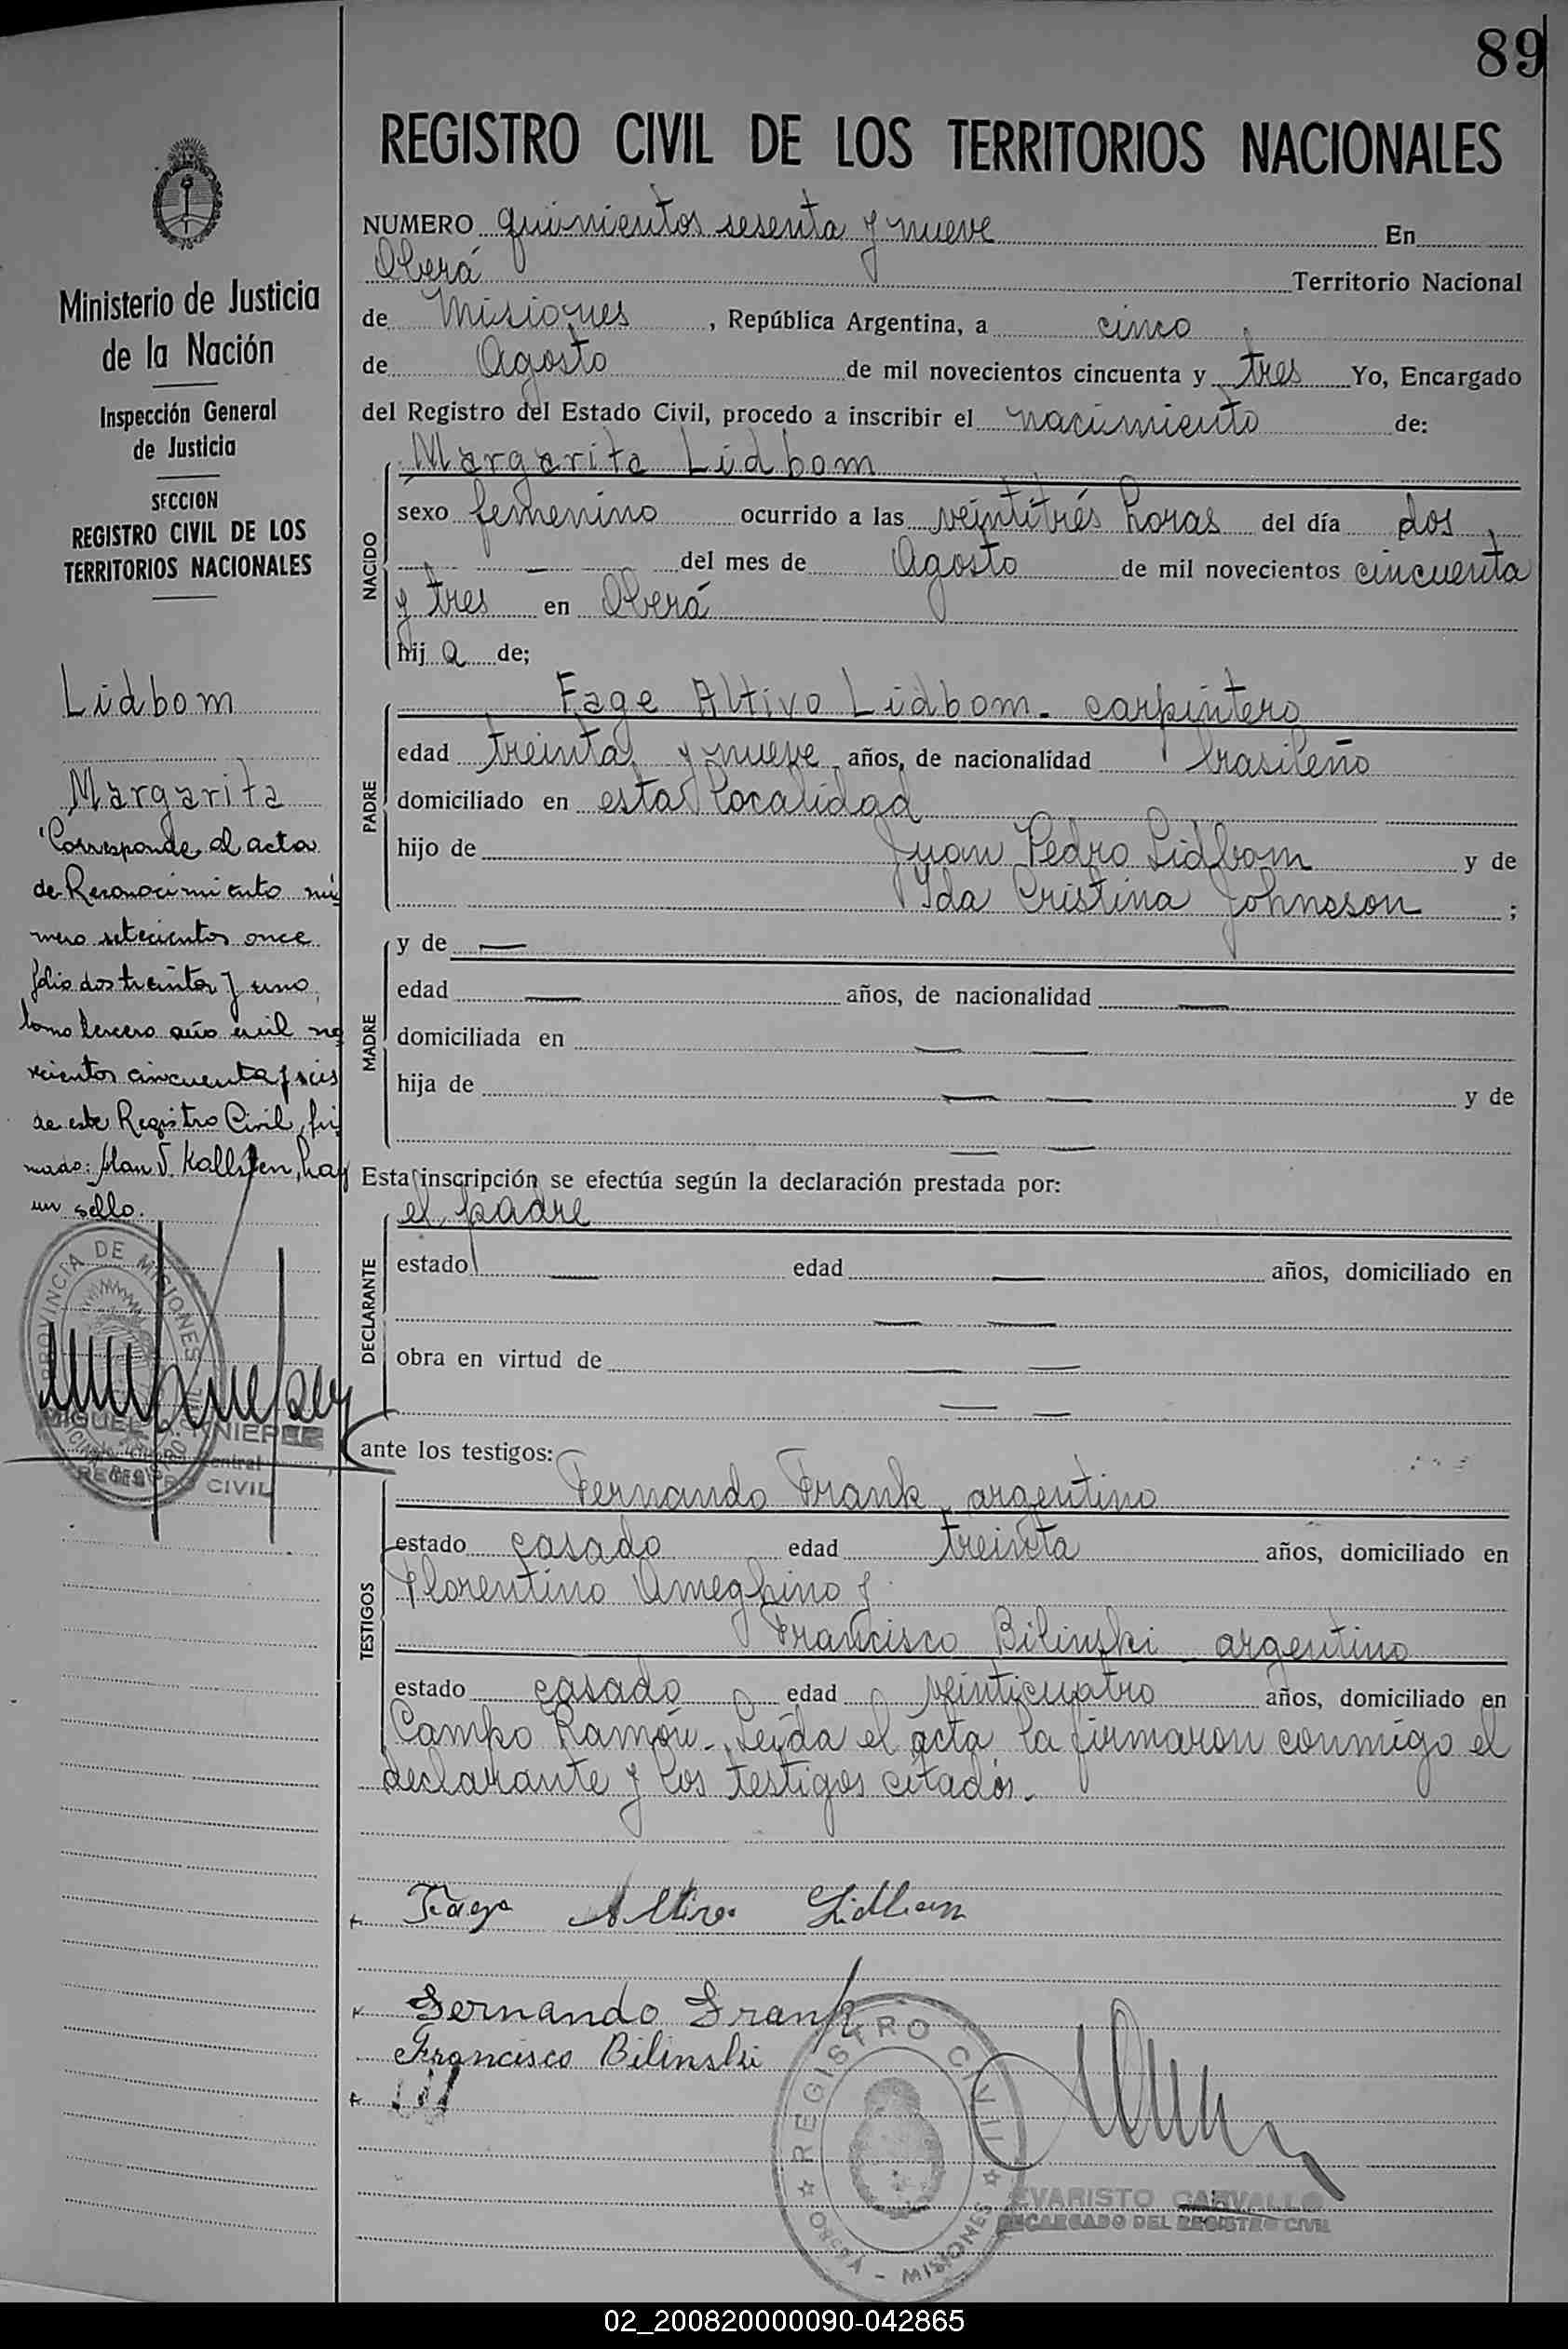 89
REGISTRO CIVIL DE LOS TERRITORIOS NACIONALES
Ministerio de Justicia
de la Nación
Inspección General
de Justicia
SECCION
REGISTRO CIVIL DE LOS
TERRITORIOS NACIONALES
Lidbom
Margarita
Corresponde al acta
de Reconocimiento nú
mero setecientos once
folio dos treinta y uno,
tomo tercero año mil no
vecientos cincuenta y seis
de este Registro Civil, fir
mado: Kallsten, hay
un sello.
PROVINCIA DE MISIONES
MIGUEL
REGISTRO CIVIL
NUMERO quinientos sesenta y nueve En
Oberá Territorio Nacional
de Misiones, República Argentina, a cinco
de Agosto de mil novecientos cincuenta y tres Yo, Encargado
del Registro del Estado Civil, procedo a inscribir el nacimiento de:
NACIDO
Margarita Lidbom
sexo femenino ocurrido a las veintitrés horas del día dos
— del mes de Agosto de mil novecientos cincuenta
y tres en Oberá
hija de;
PADRE
Fage Altivo Lidbom - carpintero
edad treinta y nueve años, de nacionalidad brasileño
domiciliado en esta localidad
hijo de Juan Pedro Lidbom y de
Ida Cristina Johnsson ;
MADRE
y de —
edad — años, de nacionalidad —
domiciliada en — —
hija de — — y de
— —
Esta inscripción se efectúa según la declaración prestada por:
DECLARANTE
el padre
estado — edad — años, domiciliado en
— —
obra en virtud de — —
— —
ante los testigos:
TESTIGOS
Fernando Frank - argentino
estado casado edad treinta años, domiciliado en
Florentino Ameghino y
Francisco Bilinski - argentino
estado casado edad veinticuatro años, domiciliado en
Campo Ramón - Leída el acta la firmaron conmigo el
declarante y los testigos citados.
Altivo Lidbom
Fernando Frank
Francisco Bilinski
REGISTRO CIVIL
OBERA - MISIONES
EVARISTO CARVALLO
ENCARGADO DEL REGISTRO CIVIL
02_200820000090-042865